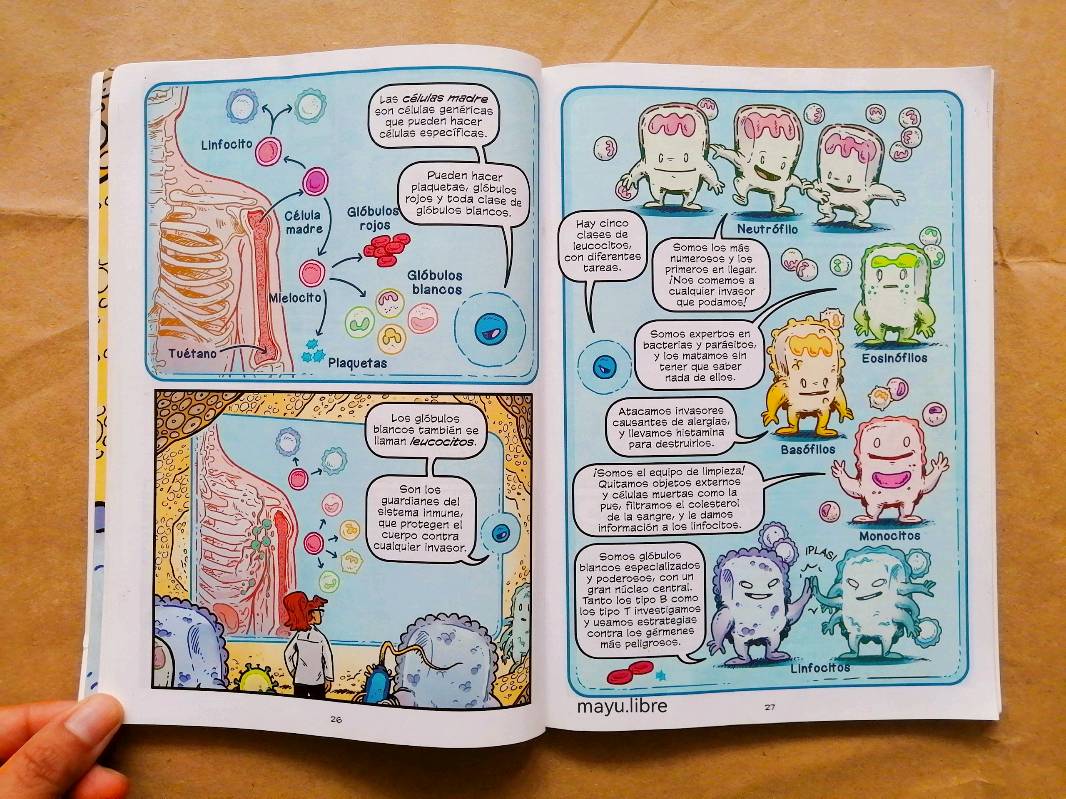 Las células madre
son células genéricas
que pueden hacer
células específicas.
Pueden hacer
plaquetas, glóbulos
rojos y toda clase de
glóbulos blancos.
Linfocito
Célula
madre
Glóbulos
rojos
Mielocito
Glóbulos
blancos
Tuétano
Plaquetas
Los glóbulos
blancos también se
llaman leucocitos.
Son los
guardianes del
sistema inmune,
que protegen el
cuerpo contra
cualquier invasor.
26
Neutrófilo
Hay cinco
clases de
leucocitos,
con diferentes
tareas.
Somos los más
numerosos y los
primeros en llegar.
¡Nos comemos a
cualquier invasor
que podamos!
Somos expertos en
bacterias y parásitos,
y los matamos sin
tener que saber
nada de ellos.
Eosinófilos
Atacamos invasores
causantes de alergias,
y llevamos histamina
para destruirlos.
Basófilos
¡Somos el equipo de limpieza!
Quitamos objetos externos
y células muertas como la
pus, filtramos el colesterol
de la sangre, y le damos
información a los linfocitos.
Monocitos
Somos glóbulos
blancos especializados
y poderosos, con un
gran núcleo central.
Tanto los tipo B como
los tipo T investigamos
y usamos estrategias
contra los gérmenes
más peligrosos.
¡PLAS!
Linfocitos
mayu.libre
27